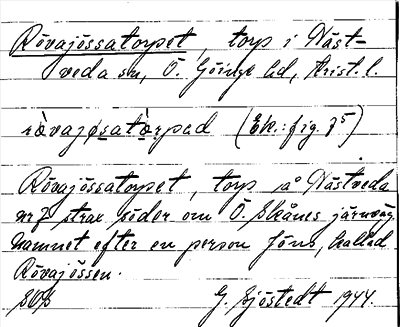 Rövajössatorpet, torp i Näst-
veda sn, Ö. Göinge hd, Krist. l.
ràvajøsatòrpad (Ek.: fig. 75)
Rövajössatorpet, torp å Nästveda
nr 7 strax söder om Ö. Skånes järnväg.
Namnet efter en person Jöns, kallad
Rövajössen.
G. Sjöstedt 1944.